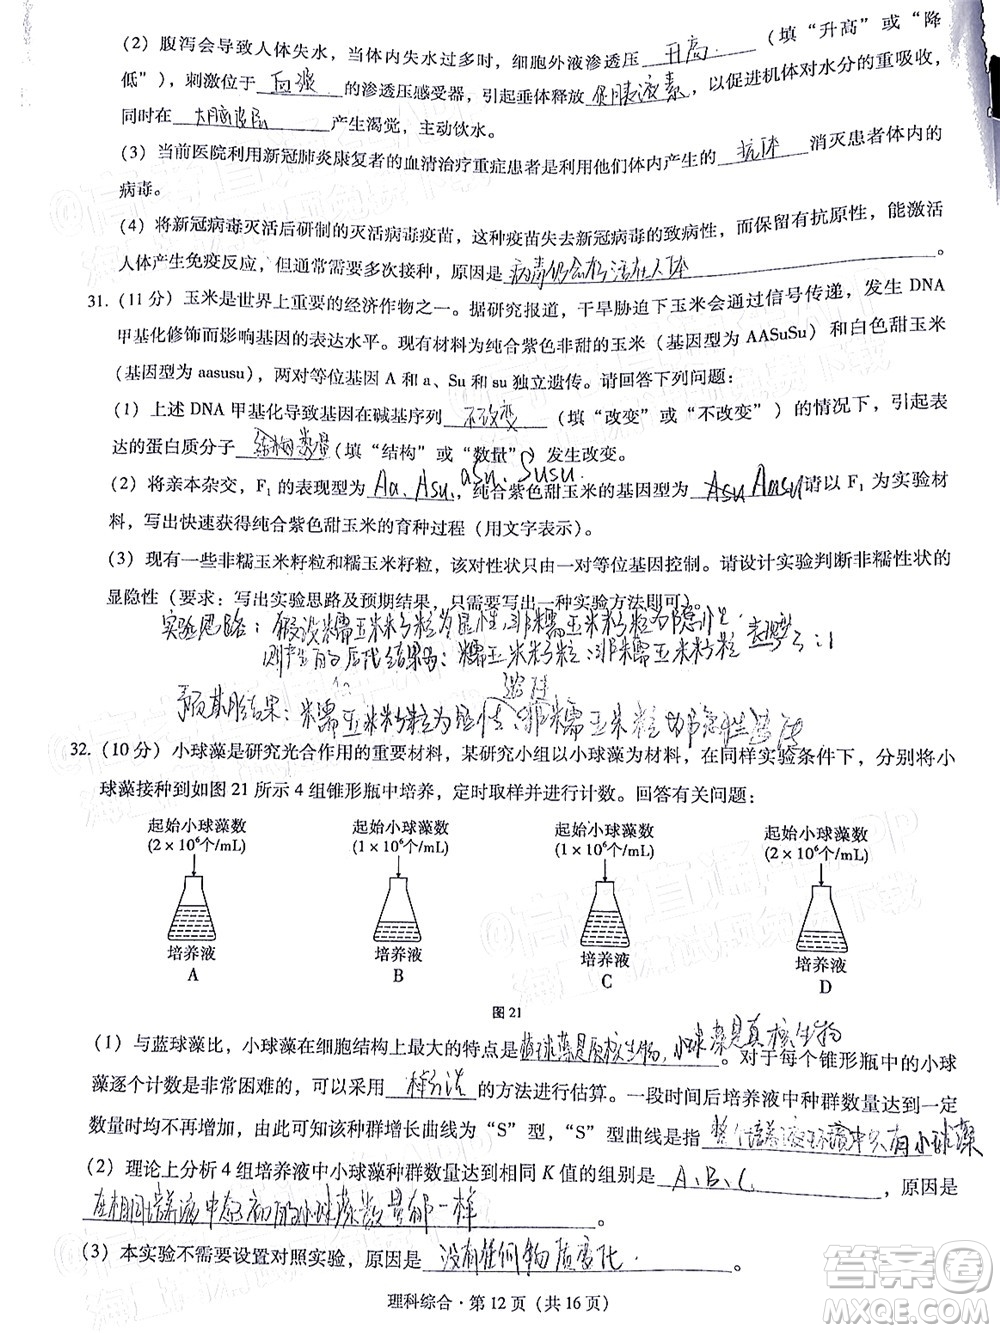 (2) 腹泻会导致人体失水，当体内失水过多时，细胞外液渗透压 升高 （填“升高”或“降
低”），刺激位于 血液 的渗透压感受器，引起垂体释放 尿胰液素 ，以促进机体对水分的重吸收，
同时在 大脑皮层 产生渴觉，主动饮水。
(3) 当前医院利用新冠肺炎康复者的血清治疗重症患者是利用他们体内产生的 抗体 消灭患者体内的
病毒。
(4) 将新冠病毒灭活后研制的灭活病毒疫苗，这种疫苗失去新冠病毒的致病性，而保留有抗原性，能激活
人体产生免疫反应，但通常需要多次接种，原因是 病毒仍会存活在人体 。
31. (11 分) 玉米是世界上重要的经济作物之一。据研究报道，干旱胁迫下玉米会通过信号传递，发生 DNA
甲基化修饰而影响基因的表达水平。现有材料为纯合紫色非甜的玉米（基因型为 AASuSu）和白色甜玉米
（基因型为 aasusu），两对等位基因 A 和 a、Su 和 su 独立遗传。请回答下列问题：
(1) 上述 DNA 甲基化导致基因在碱基序列 不改变 （填“改变”或“不改变”）的情况下，引起表
达的蛋白质分子 结构数量 （填“结构”或“数量”）发生改变。
(2) 将亲本杂交，F1 的表现型为 Aa、Asu、asu、Susu ，纯合紫色甜玉米的基因型为 Asu Amsu 请以 F1 为实验材
料，写出快速获得纯合紫色甜玉米的育种过程（用文字表示）。
(3) 现有一些非糯玉米籽粒和糯玉米籽粒，该对性状只由一对等位基因控制。请设计实验判断非糯性状的
显隐性（要求：写出实验思路及预期结果，只需要写出一种实验方法即可）。
实验思路：假设糯玉米籽粒为显性，非糯玉米籽粒为隐性
则产生的后代结果为：糯玉米籽粒：非糯玉米籽粒 表现型 3：1
预期结果：糯玉米籽粒为显性，非糯玉米粒为隐性
32. (10 分) 小球藻是研究光合作用的重要材料，某研究小组以小球藻为材料，在同样实验条件下，分别将小
球藻接种到如图 21 所示 4 组锥形瓶中培养，定时取样并进行计数。回答有关问题：
起始小球藻数 起始小球藻数 起始小球藻数 起始小球藻数
(2×10⁶个/mL) (1×10⁶个/mL) (1×10⁶个/mL) (2×10⁶个/mL)
培养液 培养液 培养液 培养液
A B C D
图 21
(1) 与蓝球藻比，小球藻在细胞结构上最大的特点是 蓝球藻是原核生物，小球藻是真核生物 。对于每个锥形瓶中的小球
藻逐个计数是非常困难的，可以采用 样方法 的方法进行估算。一段时间后培养液中种群数量达到一定
数量时均不再增加，由此可知该种群增长曲线为“S”型，“S”型曲线是指 整个培养液环境中只有小球藻
(2) 理论上分析 4 组培养液中小球藻种群数量达到相同 K 值的组别是 A、B、C ，原因是
在相同培养液中 最初的小球藻数量都一样 。
(3) 本实验不需要设置对照实验，原因是 没有任何物质变化 。
理科综合·第 12 页（共 16 页）
@高考直通车APP
答案圈
MXQE.COM